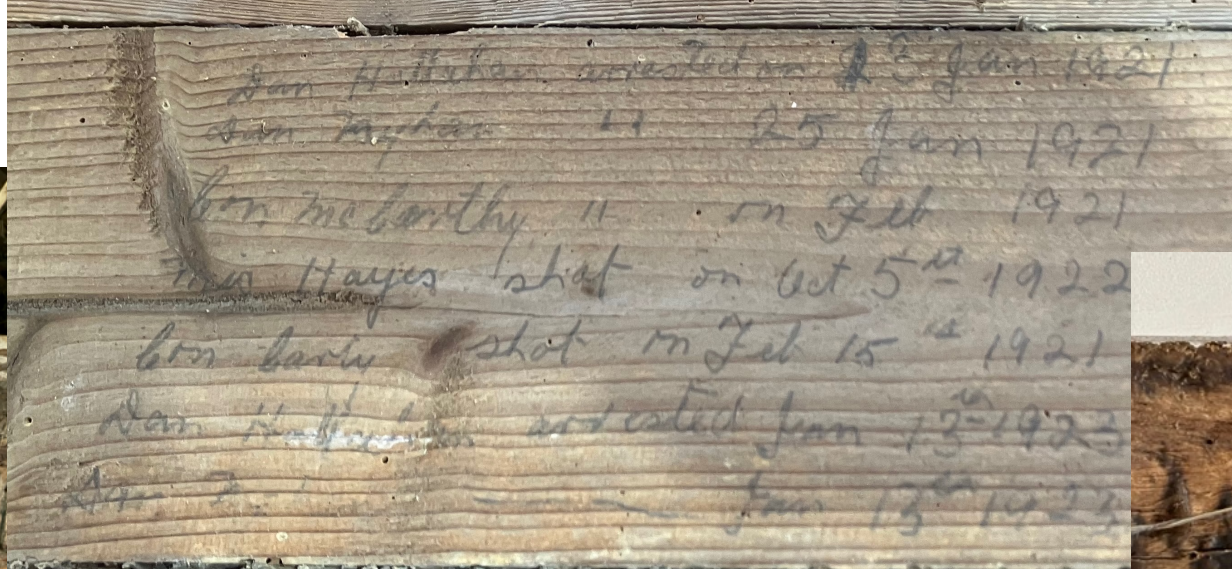 Dan Hallihan arrested on 23 Jan 1921
Dan " 25 Jan 1921
Con McCarthy " on Feb 1921
Hayes shot on Oct 5th 1922
Con Early shot on Feb 15th 1921
Dan arrested Jan 13th 1923
Dan — — Jan 13th 1923